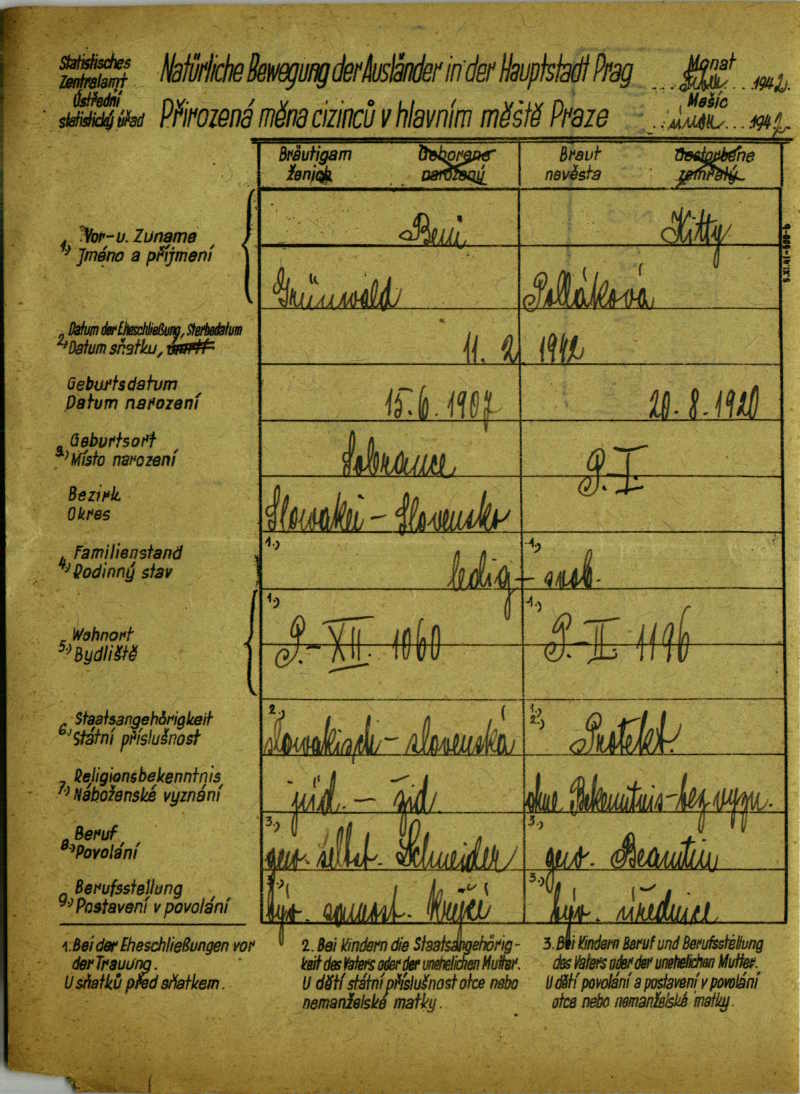 Statistisches
Zentralamt
Ústřední
statistický úřad
Natürliche Bewegung der Ausländer in der Hauptstadt Prag
Přirozená měna cizinců v hlavním městě Praze
Monat
1942.
Měsíc
únor 1942.
Bräutigam
ženich
Geborene
narozený
Braut
nevěsta
Gestorbene
zemřelý
1.) Vor- u. Zuname
Jméno a příjmení
Beni
Kitty
Grünwald
Polláková
2.) Datum der Eheschließung, Sterbedatum
Datum sňatku, úmrtí
11. 2. 1942
Geburtsdatum
Datum narození
15. 6. 1907
20. 8. 1920
3.) Geburtsort
Místo narození
Sobrance
P. I.
Bezirk
Okres
Slowakei - Slovensko
4.) Familienstand
Rodinný stav
1.)
ledig - svob.
1.)
5.) Wohnort
Bydliště
1.)
P. - XII. 1060
1.)
P. - II. 1196
6.) Staatsangehörigkeit
Státní příslušnost
2.)
slowakisch - slovenská
1.)
2.)
Protekt.
7.) Religionsbekenntnis
Náboženské vyznání
jüd. - žid.
ohne Bekenntnis - bez vyzn.
8.) Beruf
Povolání
3.)
gew. selbst. Schneider
3.)
gew. Beamtin
9.) Berufsstellung
Postavení v povolání
3.)
býv. samost. krejčí
3.)
býv. úřednice
1. Bei der Eheschließungen vor
der Trauung.
U sňatků před sňatkem.
2. Bei Kindern die Staatsangehörig-
keit des Vaters oder der unehelichen Mutter.
U dětí státní příslušnost otce nebo
nemanželské matky.
3. Bei Kindern Beruf und Berufsstellung
des Vaters oder der unehelichen Mutter.
U dětí povolání a postavení v povolání
otce nebo nemanželské matky.